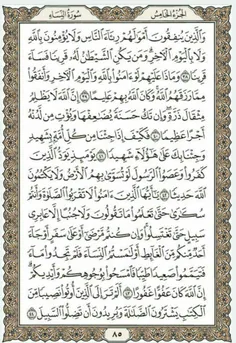 الجزء الخامس
سورة النساء
والذين ينفقون أموالهم رئاء الناس ولا يؤمنون بالله
ولا باليوم الآخر ومن يكن الشيطان له قرينا فساء
قرينا ٣٨ وماذا عليهم لو ءامنوا بالله واليوم الآخر وأنفقوا
مما رزقهم الله وكان الله بهم عليما ٣٩ إن الله لا يظلم
مثقال ذرة وإن تك حسنة يضاعفها ويؤت من لدنه
أجرا عظيما ٤٠ فكيف إذا جئنا من كل أمة بشهيد
وجئنا بك على هؤلاء شهيدا ٤١ يومئذ يود الذين
كفروا وعصوا الرسول لو تسوى بهم الأرض ولا يكتمون
الله حديثا ٤٢ يا أيها الذين ءامنوا لا تقربوا الصلوة وأنتم
سكارى حتى تعلموا ما تقولون ولا جنبا إلا عابري
سبيل حتى تغتسلوا وإن كنتم مرضى أو على سفر أو جاء
أحد منكم من الغائط أو لامستم النساء فلم تجدوا ماء
فتيمموا صعيدا طيبا فامسحوا بوجوهكم وأيديكم
إن الله كان عفوا غفورا ٤٣ ألم تر إلى الذين أوتوا نصيبا من
الكتاب يشترون الضلالة ويريدون أن تضلوا السبيل ٤٤
٨٥